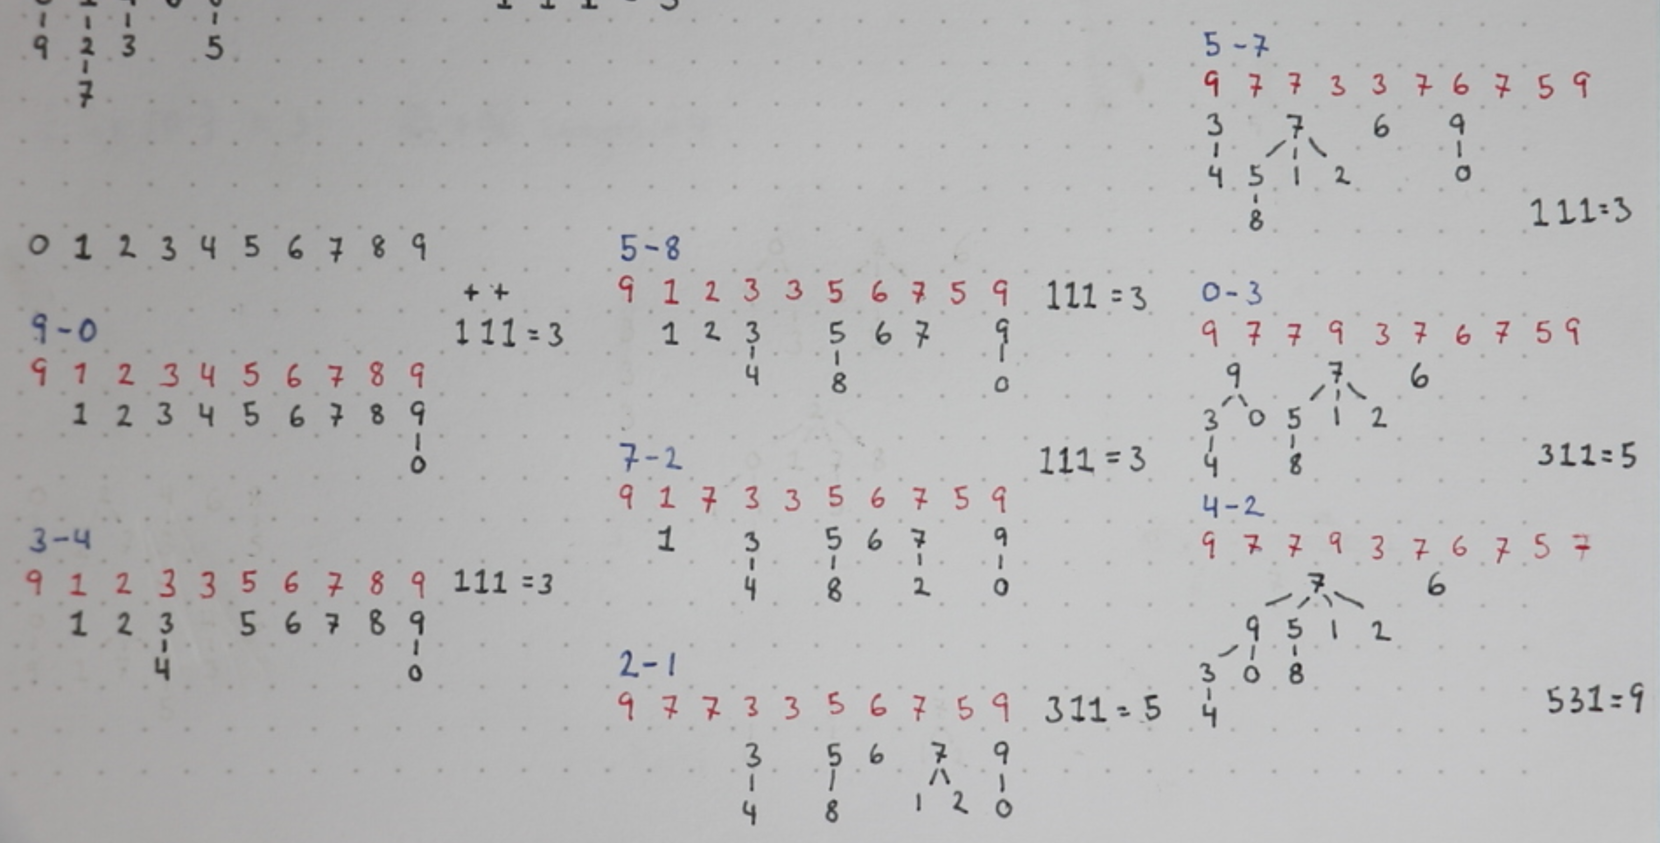 9 2 3 5
7
0 1 2 3 4 5 6 7 8 9
+ +
111=3
9-0
9 1 2 3 4 5 6 7 8 9
1 2 3 4 5 6 7 8 9
0
3-4
9 1 2 3 3 5 6 7 8 9 111=3
1 2 3 5 6 7 8 9
4 0
5-8
9 1 2 3 3 5 6 7 5 9 111=3
1 2 3 5 6 7 9
4 8 0
7-2 111=3
9 1 7 3 3 5 6 7 5 9
1 3 5 6 7 9
4 8 2 0
2-1
9 7 7 3 3 5 6 7 5 9 311=5
3 5 6 7 9
4 8 1 2 0
5-7
9 7 7 3 3 7 6 7 5 9
3 7 6 9
4 5 1 2 0
8
111=3
0-3
9 7 7 9 3 7 6 7 5 9
9 7 6
3 0 5 1 2
4 8
311=5
4-2
9 7 7 9 3 7 6 7 5 7
7 6
9 5 1 2
3 0 8
4
531=9